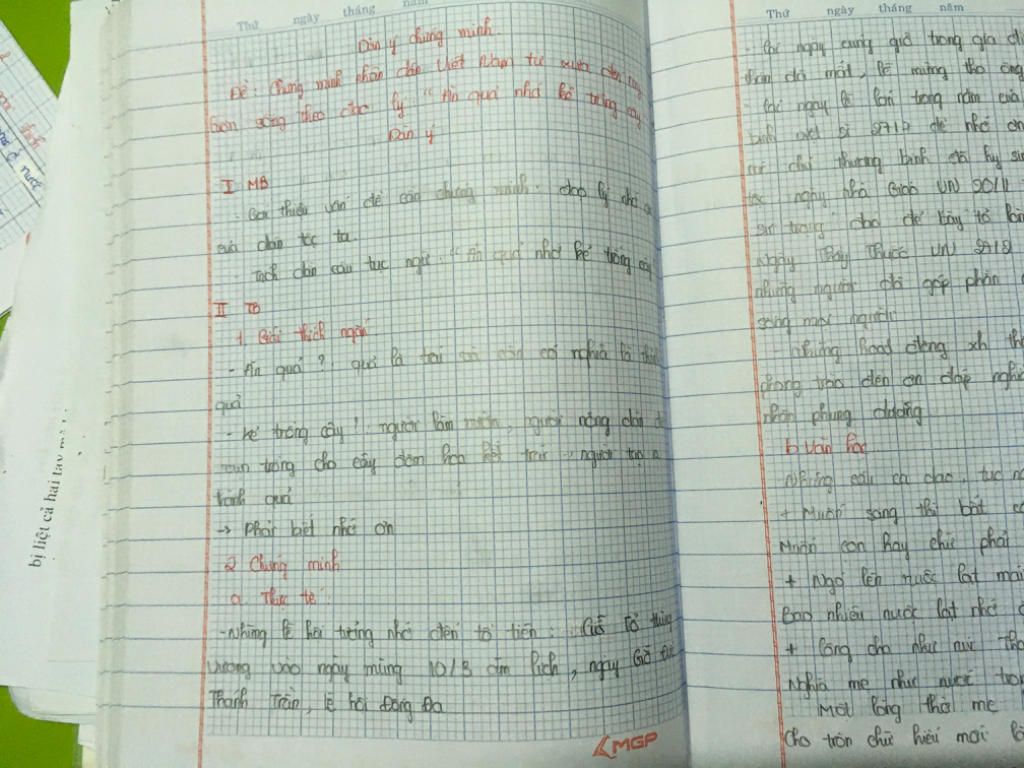 Thứ ngày tháng năm
Dàn ý chứng minh
Đề: Chứng minh nhân dân Việt Nam từ xưa đến nay
luôn sống theo đạo lý "Ăn quả nhớ kẻ trồng cây
Dàn ý
I MB
- Giới thiệu vấn đề cần chứng minh: đạo lý
của dân tộc ta.
- Trích dẫn câu tục ngữ: "Ăn quả nhớ kẻ trồng cây
II TB
1. Giải thích ngắn
- Ăn quả? quả là trái có nghĩa là
quả
- kẻ trồng cây? người làm, người nông dân
trồng cho cây đơm hoa kết trái → người tạo ra
thành quả
→ Phải biết nhớ ơn
2 Chứng minh
a. Thực tế:
- Những lễ hội tưởng nhớ đến tổ tiên: Giỗ Tổ Hùng
Vương vào ngày mùng 10/3 âm lịch, ngày Giỗ Đức
Thánh Trần, lễ hội Đống Đa
MGP
Thứ ngày tháng năm
- Các ngày cúng giỗ trong gia
thân đã mất, lễ mừng thọ ông
- Các ngày lễ lớn trong năm của
binh liệt sĩ 27/7 để nhớ ơn
thương binh đã hy sinh
ngày nhà Giáo VN 20/11
cho để bày tỏ
Ngày Thầy Thuốc VN 27/2
những người đã góp phần
sống mọi người.
- Những hoạt động xh
phong trào đền ơn đáp nghĩa
nhận phụng dưỡng
b. Văn học
Những câu ca dao, tục
+ Muốn sang thì bắt
Muốn con hay chữ phải
+ Ngó lên nuộc lạt mái
Bao nhiêu nuộc lạt nhớ
+ Công cha như núi
Nghĩa mẹ như nước
Một lòng thờ mẹ
Cho tròn chữ hiếu mới
bị liệt cả hai tay